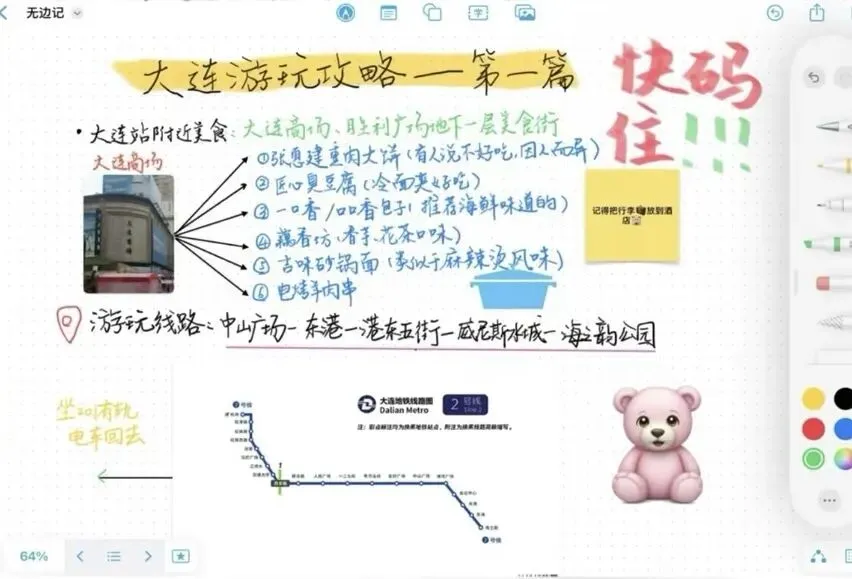 无边记
大连游玩攻略—第一篇
快码
住!!!
大连站附近美食:大连商场、胜利广场地下一层美食街
大连商场
①张恩建熏肉大饼(有人说不好吃,因人而异)
②匠心臭豆腐(冷面更好吃)
③一口香/口口香包子(推荐海鲜味道的)
④藕香坊(香芋、花茶口味)
⑤古味砂锅面(类似于麻辣烫风味)
⑥电烤羊肉串
记得把行李放到酒
店
游玩线路:中山广场—东港—港东五街—威尼斯水城—海之韵公园
坐201有轨
电车回去
大连地铁线路图
Dalian Metro
2号线
Line 2
2号线
2号线
64%